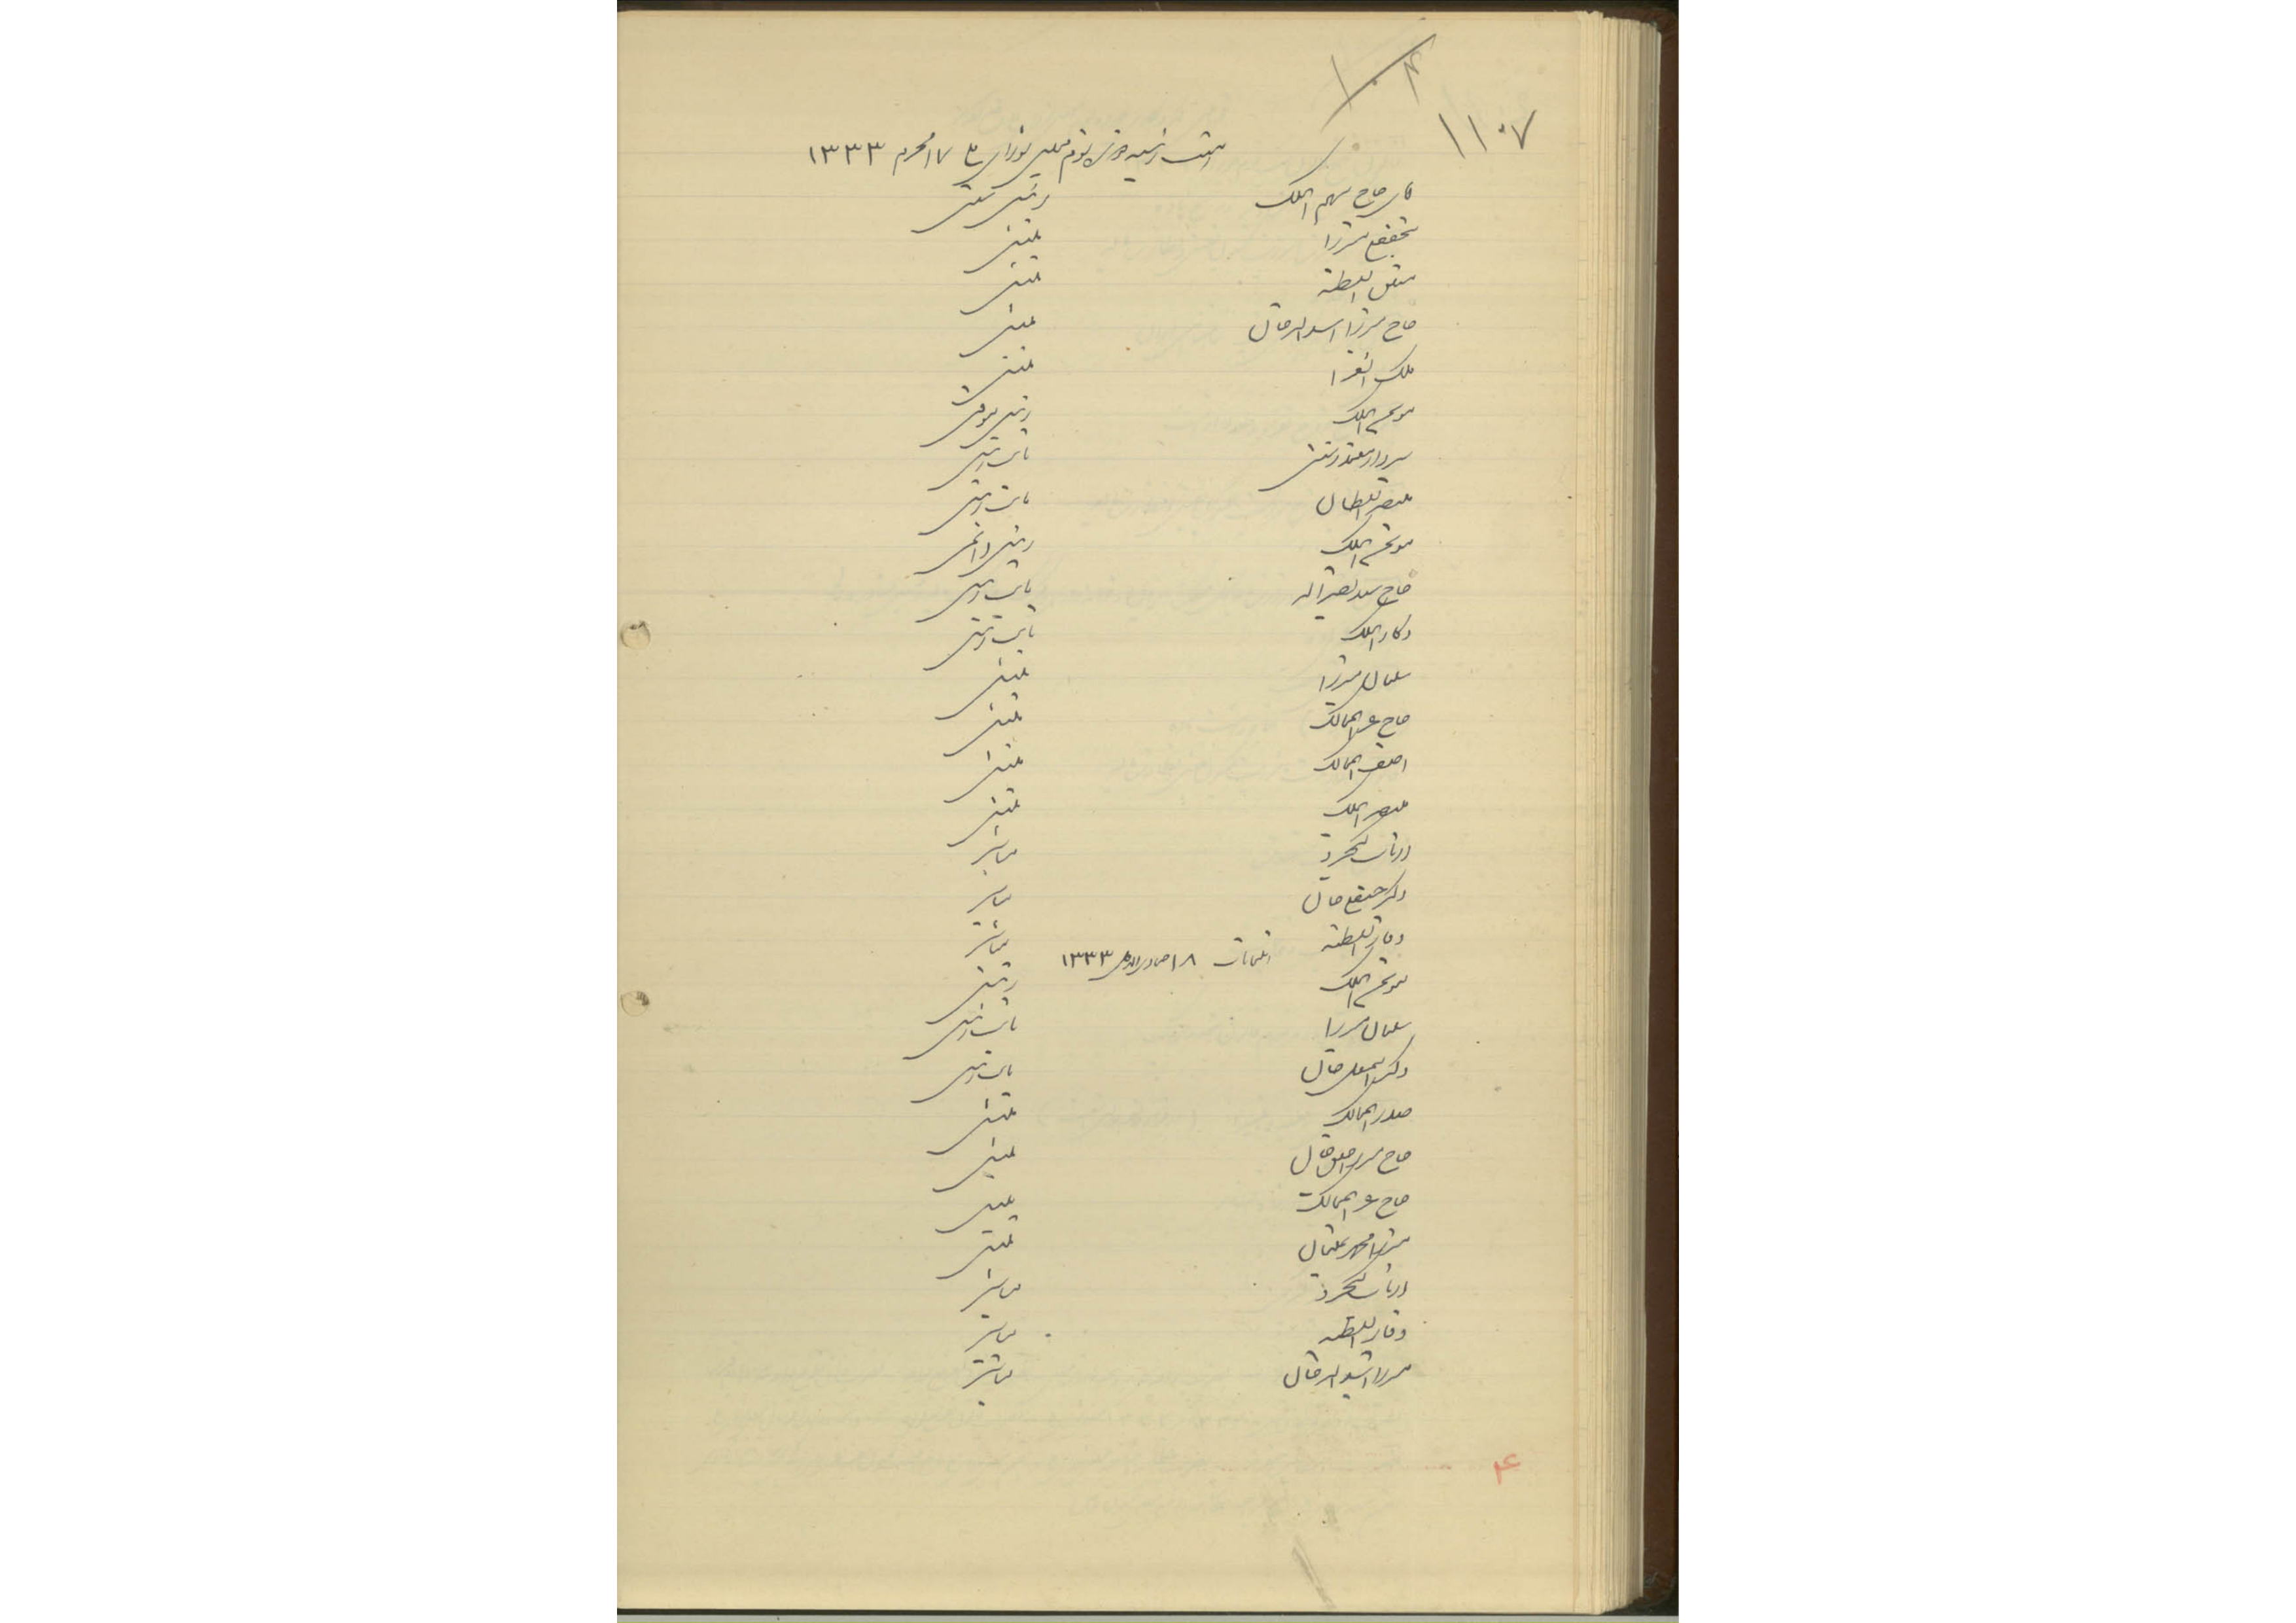 ۱۰۴
۱۱۰۷
هیئت رئیسه دوره سوم مجلس شورای ملی ۱۷ محرم ۱۳۳۳
حاج سهم الملک رئیس سنی
منشی
منشی
حاج میرزا اسدالله خان منشی
ملک الشعرا منشی
مؤتمن الملک رئیس موقتی
سردار معتمد رشتی نایب رئیس
منتصر السلطان نایب رئیس
مؤتمن الملک رئیس دائمی
حاج سید نصرالله نایب رئیس
ذکاء الملک نایب رئیس
سلیمان میرزا منشی
حاج عز الممالک منشی
آصف الممالک منشی
منتصر الملک منشی
ارباب کیخسرو مباشر
دکتر حسنقلی خان مباشر
وقار السلطنه مباشر
انتخابات ۱۸ جمادی الاولی ۱۳۳۳
مؤتمن الملک رئیس
سلیمان میرزا نایب رئیس
دکتر اسمعیل خان نایب رئیس
صدر الممالک منشی
حاج میرزا خان منشی
حاج عز الممالک منشی
میرزا محمد علیخان منشی
ارباب کیخسرو مباشر
وقار السلطنه مباشر
میرزا اسدالله خان مباشر
۴